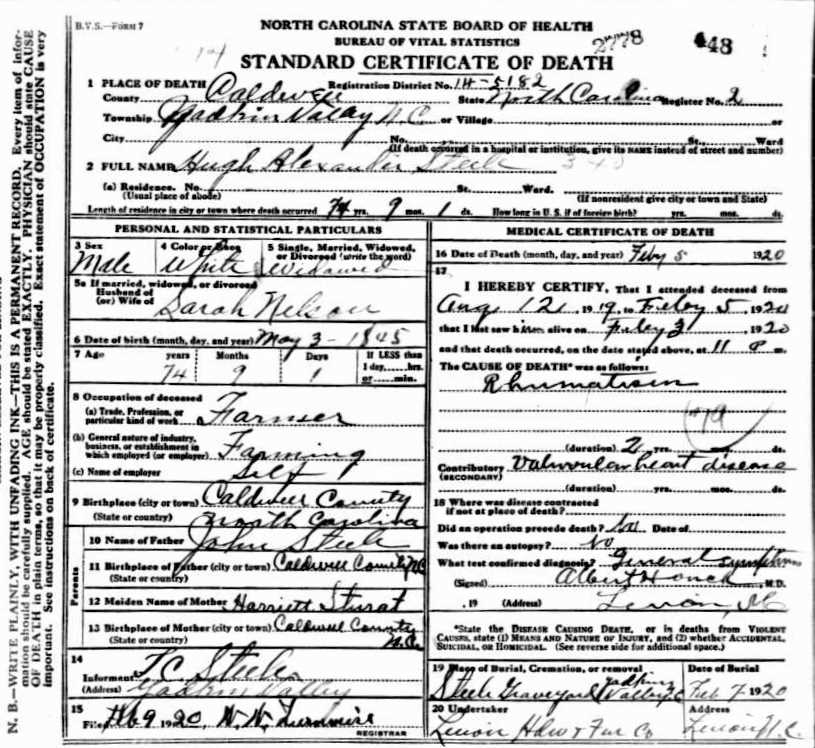 B.V.S.—FORM 7
NORTH CAROLINA STATE BOARD OF HEALTH
BUREAU OF VITAL STATISTICS
2778
448
STANDARD CERTIFICATE OF DEATH
1 PLACE OF DEATH Registration District No. 14-5182
County Caldwell State North Carolina Register No. 2
Township Yadkin Valley N.C. or Village or
City No. St., Ward
(If death occurred in a hospital or institution, give its NAME instead of street and number)
2 FULL NAME Hugh Alexander Steele
(a) Residence. No. St. Ward.
(Usual place of abode) (If nonresident give city or town and State)
Length of residence in city or town where death occurred 74 yrs. 9 mos. 1 ds. How long in U. S. if of foreign birth? yrs. mos. ds.
PERSONAL AND STATISTICAL PARTICULARS
3 Sex 4 Color or Race 5 Single, Married, Widowed, or Divorced (write the word)
Male White Widowed
5a If married, widowed, or divorced
Husband of
(or) Wife of Sarah Nelson
6 Date of birth (month, day, and year) May 3-1845
7 Age years Months Days If LESS than
1 day, hrs.
or min.
74 9 1
8 Occupation of deceased
(a) Trade, Profession, or particular kind of work Farmer
(b) General nature of industry, business, or establishment in which employed (or employer) Farming
(c) Name of employer Self
9 Birthplace (city or town) Caldwell County
(State or country) North Carolina
Parents
10 Name of Father John Steele
11 Birthplace of Father (city or town) Caldwell County N.C.
(State or country)
12 Maiden Name of Mother Harriett Sturat
13 Birthplace of Mother (city or town) Caldwell County
(State or country) N.C.
14
Informant J.C. Steele
(Address) Yadkin Valley
15
Filed Feb 9 1920. REGISTRAR
MEDICAL CERTIFICATE OF DEATH
16 Date of Death (month, day, and year) Feby 5 1920
17
I HEREBY CERTIFY, That I attended deceased from
Aug 12, 1919, to Feby 5, 1920
that I last saw him alive on Feby 3, 1920
and that death occurred, on the date stated above, at 11 P m.
The CAUSE OF DEATH* was as follows:
Rhumatism
(duration) 2 yrs. mos. ds.
Contributory Valvoular heart disease
(SECONDARY)
(duration) yrs. mos. ds.
18 Where was disease contracted
if not at place of death?
Did an operation precede death? No Date of
Was there an autopsy? No
What test confirmed diagnosis? General symptoms
(Signed) Albert Houck M.D.
, 19 (Address) Lenoir, NC
*State the DISEASE CAUSING DEATH, or in deaths from VIOLENT CAUSES, state (1) MEANS AND NATURE OF INJURY, and (2) whether ACCIDENTAL, SUICIDAL, or HOMICIDAL. (See reverse side for additional space.)
19 Place of Burial, Cremation, or removal Date of Burial
Steele Graveyard Yadkin Valley N.C. Feb 7 1920
20 Undertaker Address
Lenoir Hdw & Fur Co Lenoir N.C.
N. B.—WRITE PLAINLY, WITH UNFADING INK—THIS IS A PERMANENT RECORD. Every item of information should be carefully supplied. AGE should be stated EXACTLY. PHYSICIAN should state CAUSE OF DEATH in plain terms, so that it may be properly classified. Exact statement of OCCUPATION is very important. See instructions on back of certificate.